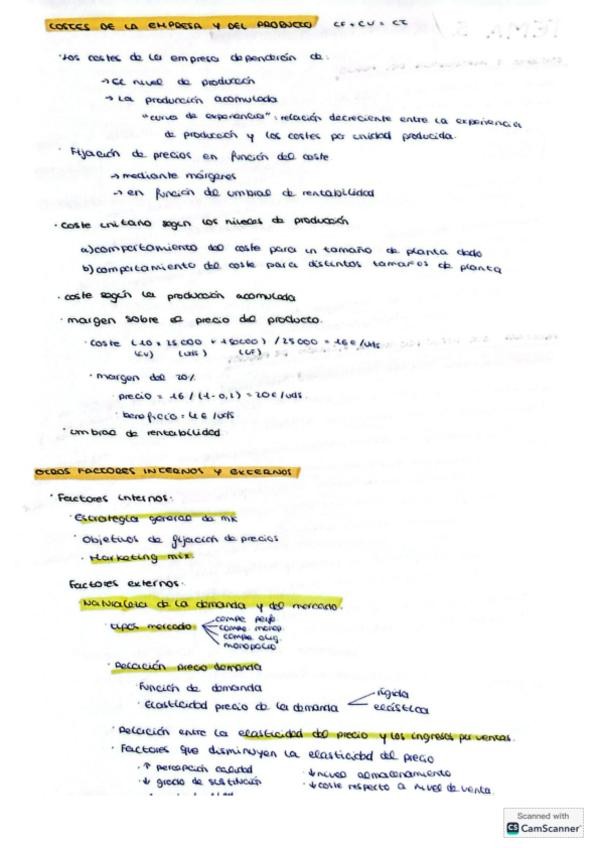 COSTES DE LA EMPRESA Y DEL PRODUCTO CF + CV = CT
· Los costes de la empresa dependerán de:
→ El nivel de producción
→ La producción acumulada
"curva de experiencia": relación decreciente entre la experiencia
de producción y los costes por unidad producida.
· Fijación de precios en función del coste
→ mediante márgenes
→ en función del umbral de rentabilidad
· coste unitario según los niveles de producción
a) comportamiento del coste para un tamaño de planta dado
b) comportamiento del coste para distintos tamaños de planta
· coste según la producción acumulada
· margen sobre el precio del producto.
· coste (10 x 25000 + 150000) / 25000 = 16 €/uds
(CV) (uds) (CF)
· margen del 20%
· precio = 16 / (1-0,2) = 20€/uds.
· beneficio = 4€/uds
· umbral de rentabilidad
OTROS FACTORES INTERNOS Y EXTERNOS
· Factores internos:
· Estrategia general de mk
· Objetivos de fijación de precios
· Marketing mix
Factores externos:
· Naturaleza de la demanda y del mercado.
· tipos mercado
compe. perf.
compe. monop.
compe. olig.
monopolio
· Relación precio demanda
· Función de demanda
· Elasticidad precio de la demanda
rígida
elástica
· Relación entre la elasticidad del precio y los ingresos por ventas.
· Factores que disminuyen la elasticidad del precio
· ↑ percepción calidad
· ↓ nivel almacenamiento
· ↓ grado de sustitución
· ↓ coste respecto a nivel de venta.
Scanned with
CS CamScanner